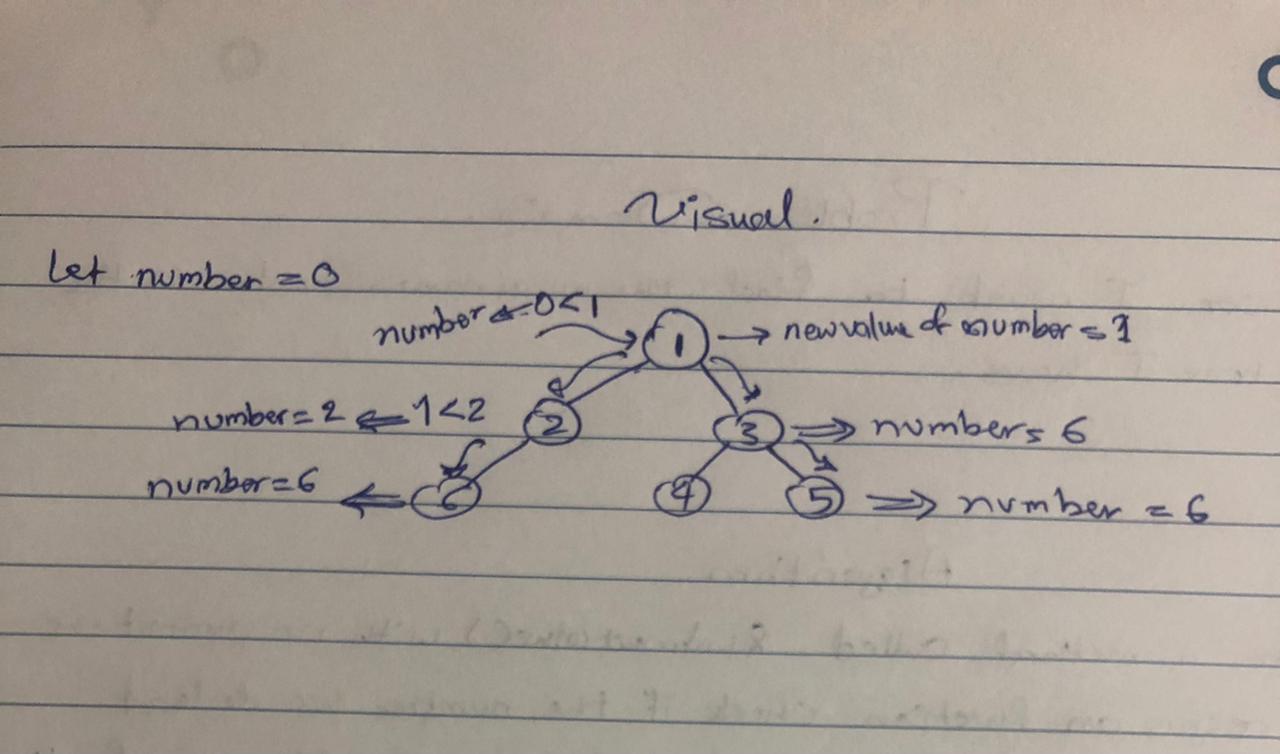 Visual.
Let number = 0
number ← 0<1
1 → new value of number = 1
number = 2 ⇐ 1<2 2 3 ⇒ number = 6
number = 6 ⇐ 6 4 5 ⇒ number = 6